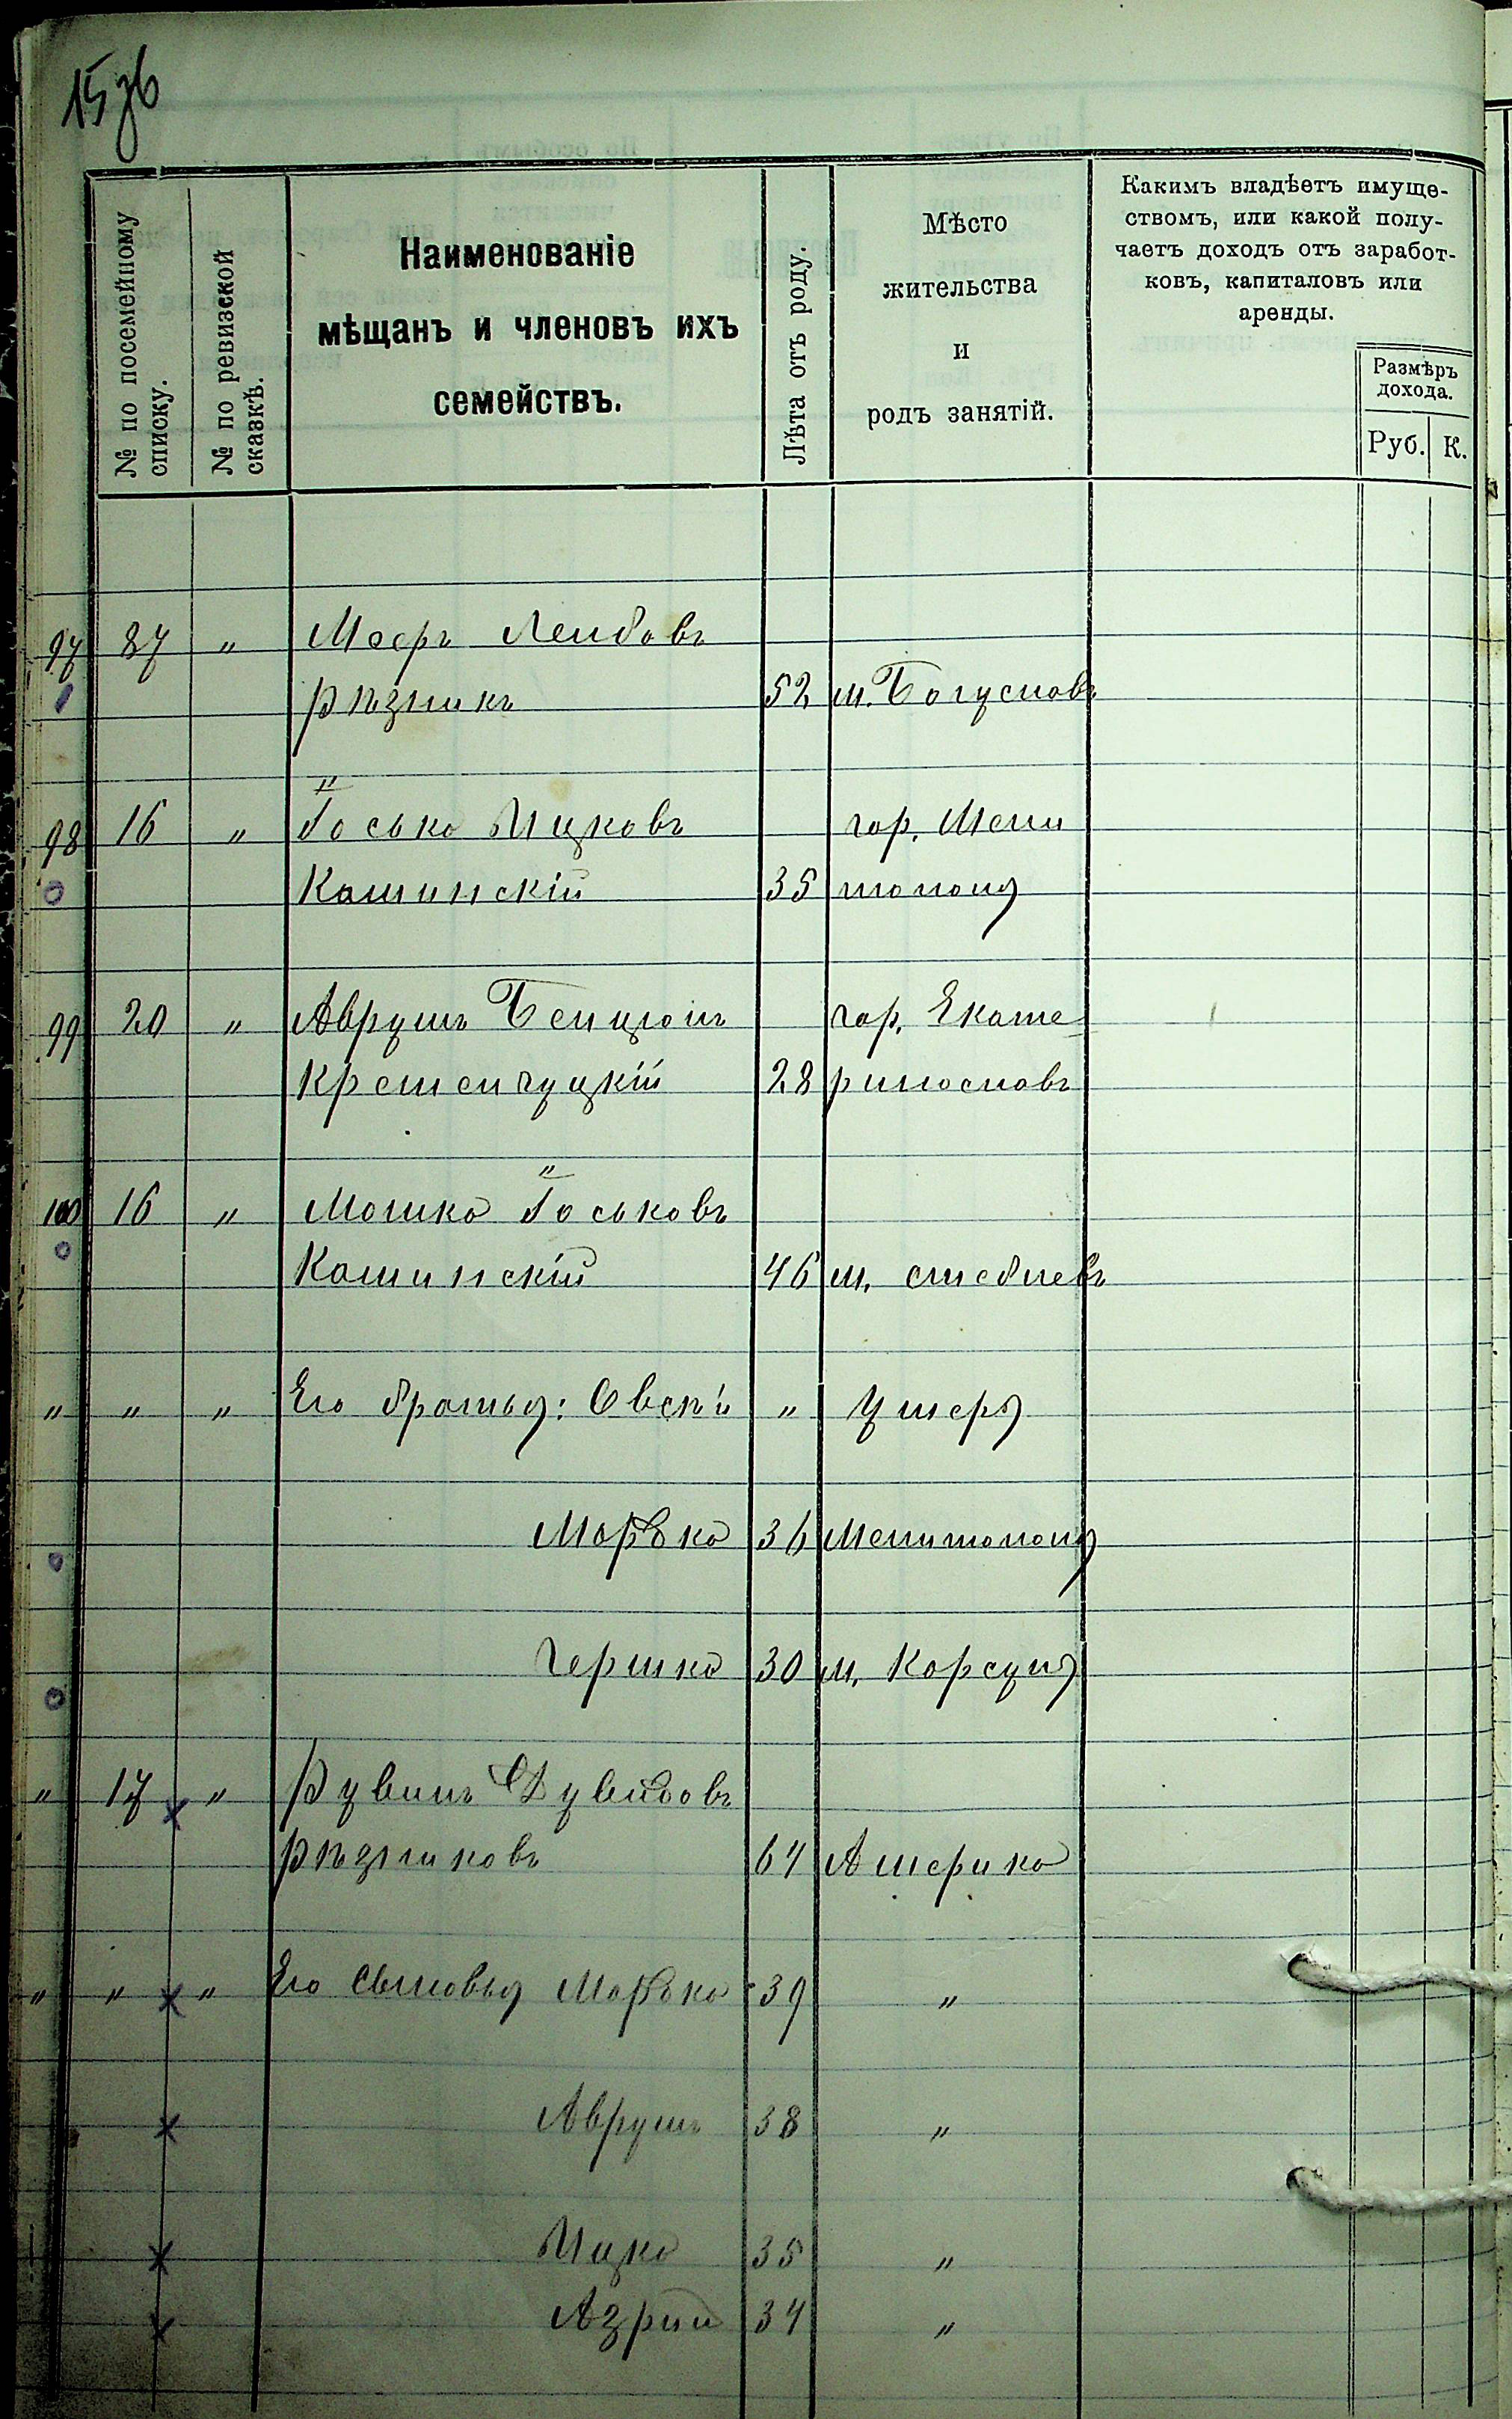 15 об
№ по посемейному списку.
№ по ревизской сказкѣ.
Наименованіе
мѣщанъ и членовъ ихъ
семействъ.
Лѣта отъ роду.
Мѣсто
жительства
и
родъ занятій.
Какимъ владѣетъ имуще-
ствомъ, или какой полу-
чаетъ доходъ отъ заработ-
ковъ, капиталовъ или
аренды.
Размѣръ
дохода.
Руб. К.
97 87 " Мееръ Лейбовъ
Рѣзникъ 52 м. Богуславъ
98 16 " Іосько Ицковъ гор. Мели
Кашинскій 35 тополя
99 20 " Аврумъ Бенціонъ гор. Екате
Кременчуцкій 28 ринославъ
100 16 " Мошко Іоськовъ
Кашинскій 46 м. Стеблевъ
" " " Его братья: Овсѣй " умеръ
Марѣко 36 Мелитополя
Гершко 30 м. Корсуня
" 17 " Рувинъ Дувидовъ
Рѣзниковъ 64 Америка
" " " Его сыновья Марѣко 39 "
Аврумъ 38 "
Ицко 35 "
Азрии 34 "